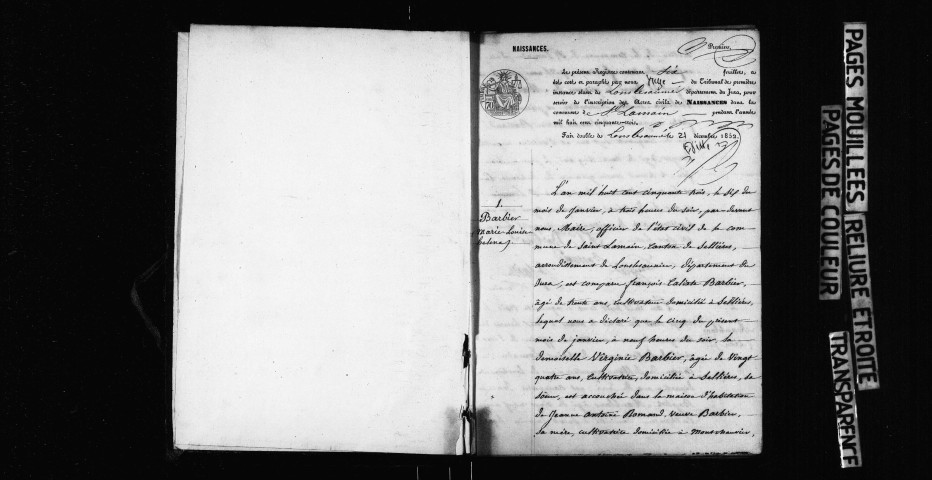 NAISSANCES.
Premier.
Le présent Registre contenant six feuillets, a
été coté et paraphé par nous Juge du Tribunal de première
instance séant de Lonslesaunier département du Jura, pour
servir de l'inscription des Actes civils de NAISSANCES dans la
commune de St Lamain pendant l'année
mil huit cent cinquante-trois.
Fait double à Lonslesaunier 21 décembre 1852
1.
Barbier
marie-Louise
helena
L'an mil huit cent cinquante trois, le six du
mois de Janvier, à trois heures du soir, par-devant
nous Maire, officier de l'état civil de la com
mune de Saint Lamain, canton de Sellières,
arrondissement de Lonslesaunier, département du
Jura, est comparu françois Barbier,
âgé de trente ans, cultivateur domicilié à Sellières,
lequel nous a déclaré que le cinq du présent
mois de janvier, à neuf heures du soir, la
demoiselle Virginie Barbier, âgée de vingt
quatre ans, cultivatrice, domiciliée à Sellières, sa
soeur, est accouchée dans la maison d'habitation
de Jeanne Antoine Romand, veuve Barbier,
sa mère, cultivatrice domiciliée à
PAGES MOUILLEES
PAGES DE COULEUR
RELIURE ETROITE
TRANSPARENCE